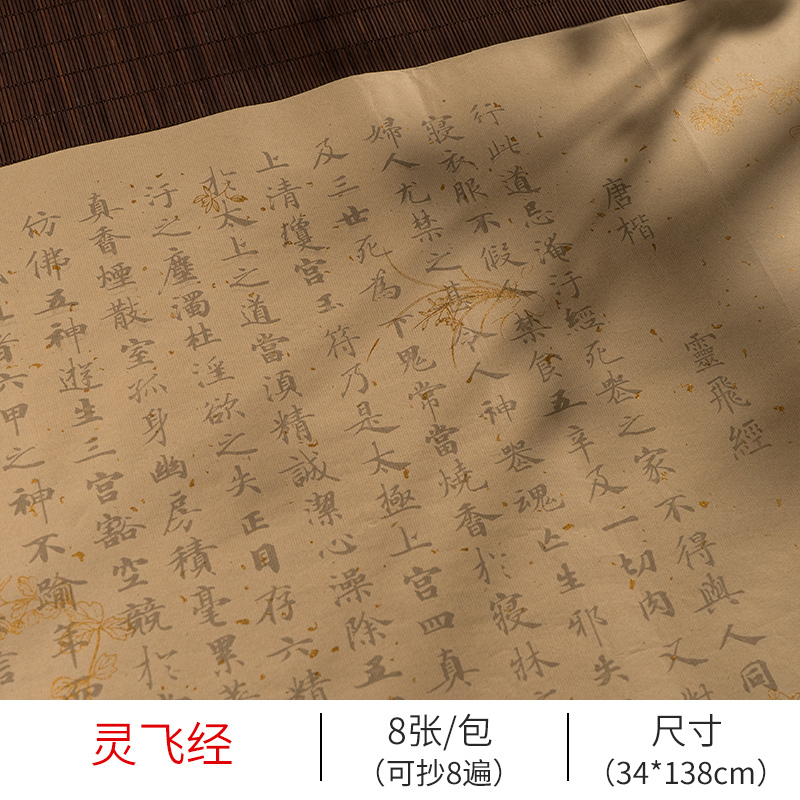 靈飛經
唐楷
行此道忌淹汙經死喪之家不得與人同
寢衣服不假人禁食五辛及一切肉又對
婦人尤禁之甚令人神喪魂亡生邪失
及三世死為下鬼常當燒香於寢牀
上清瓊宮玉符乃是太極上宮四真
於太上之道當湏精誠潔心澡除五
汙之塵濁杜淫欲之失正目存六精
真香煙散室孤身幽房積毫累著
仿佛五神遊生三宮豁空競於
者六甲之神不踰年而
言
灵飞经
8张/包
（可抄8遍）
尺寸
（34*138cm）